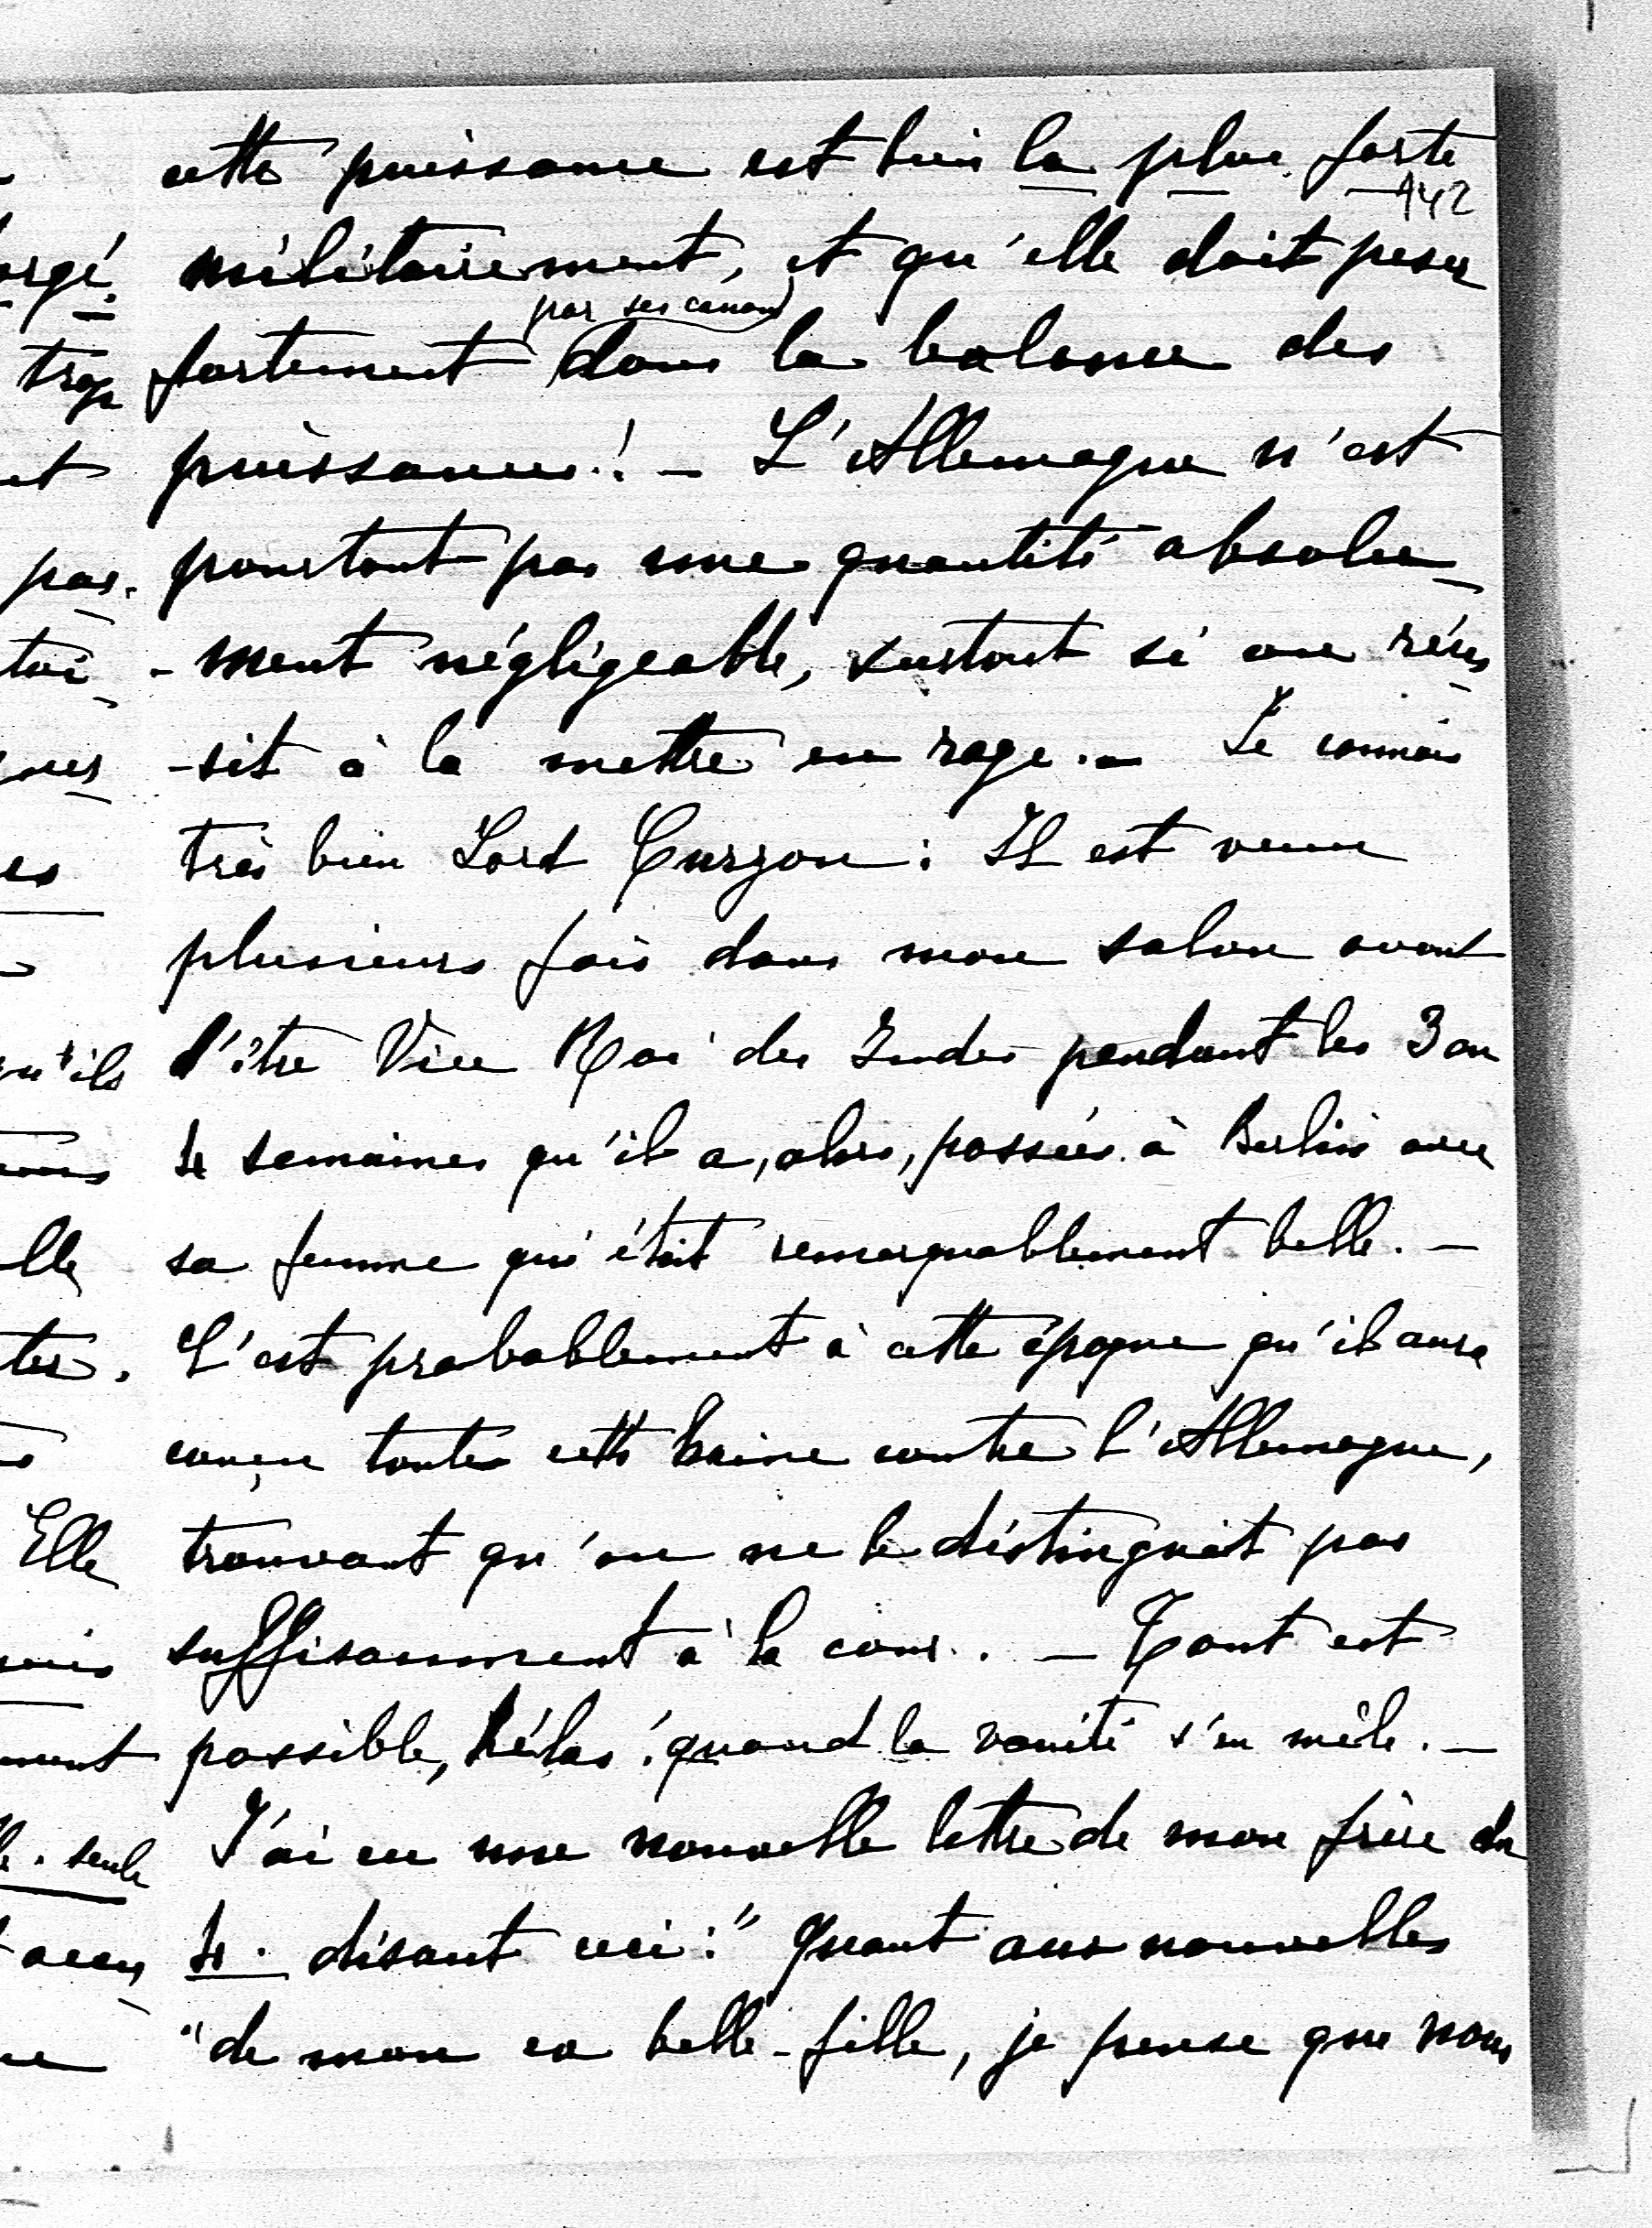 cette puissance est bien la plus forte
142
militairement, et qu'elle doit peser
par ses canons
fortement dans la balance des
puissances! — L'Allemagne n'est
pourtant pas une quantité absolu-
-ment négligeable, surtout si on réus-
-sit à la mettre en rage. — Je connais
très bien Lord Curzon: Il est venu
plusieurs fois dans mon salon avant
d'être Vice Roi des Indes pendant les 3 ou
4 semaines qu'il a, alors, passées à Berlin avec
sa femme qui était remarquablement belle. —
C'est probablement à cette époque qu'il aura
conçu toute cette haine contre l'Allemagne,
trouvant qu'on ne le distinguait pas
suffisamment à la cour. — Tout est
possible, hélas! quand la vanité s'en mêle. —
J'ai eu une nouvelle lettre de mon frère du
4. disant ceci: " Quant aux nouvelles
"de mon ex belle-fille, je pense que nous